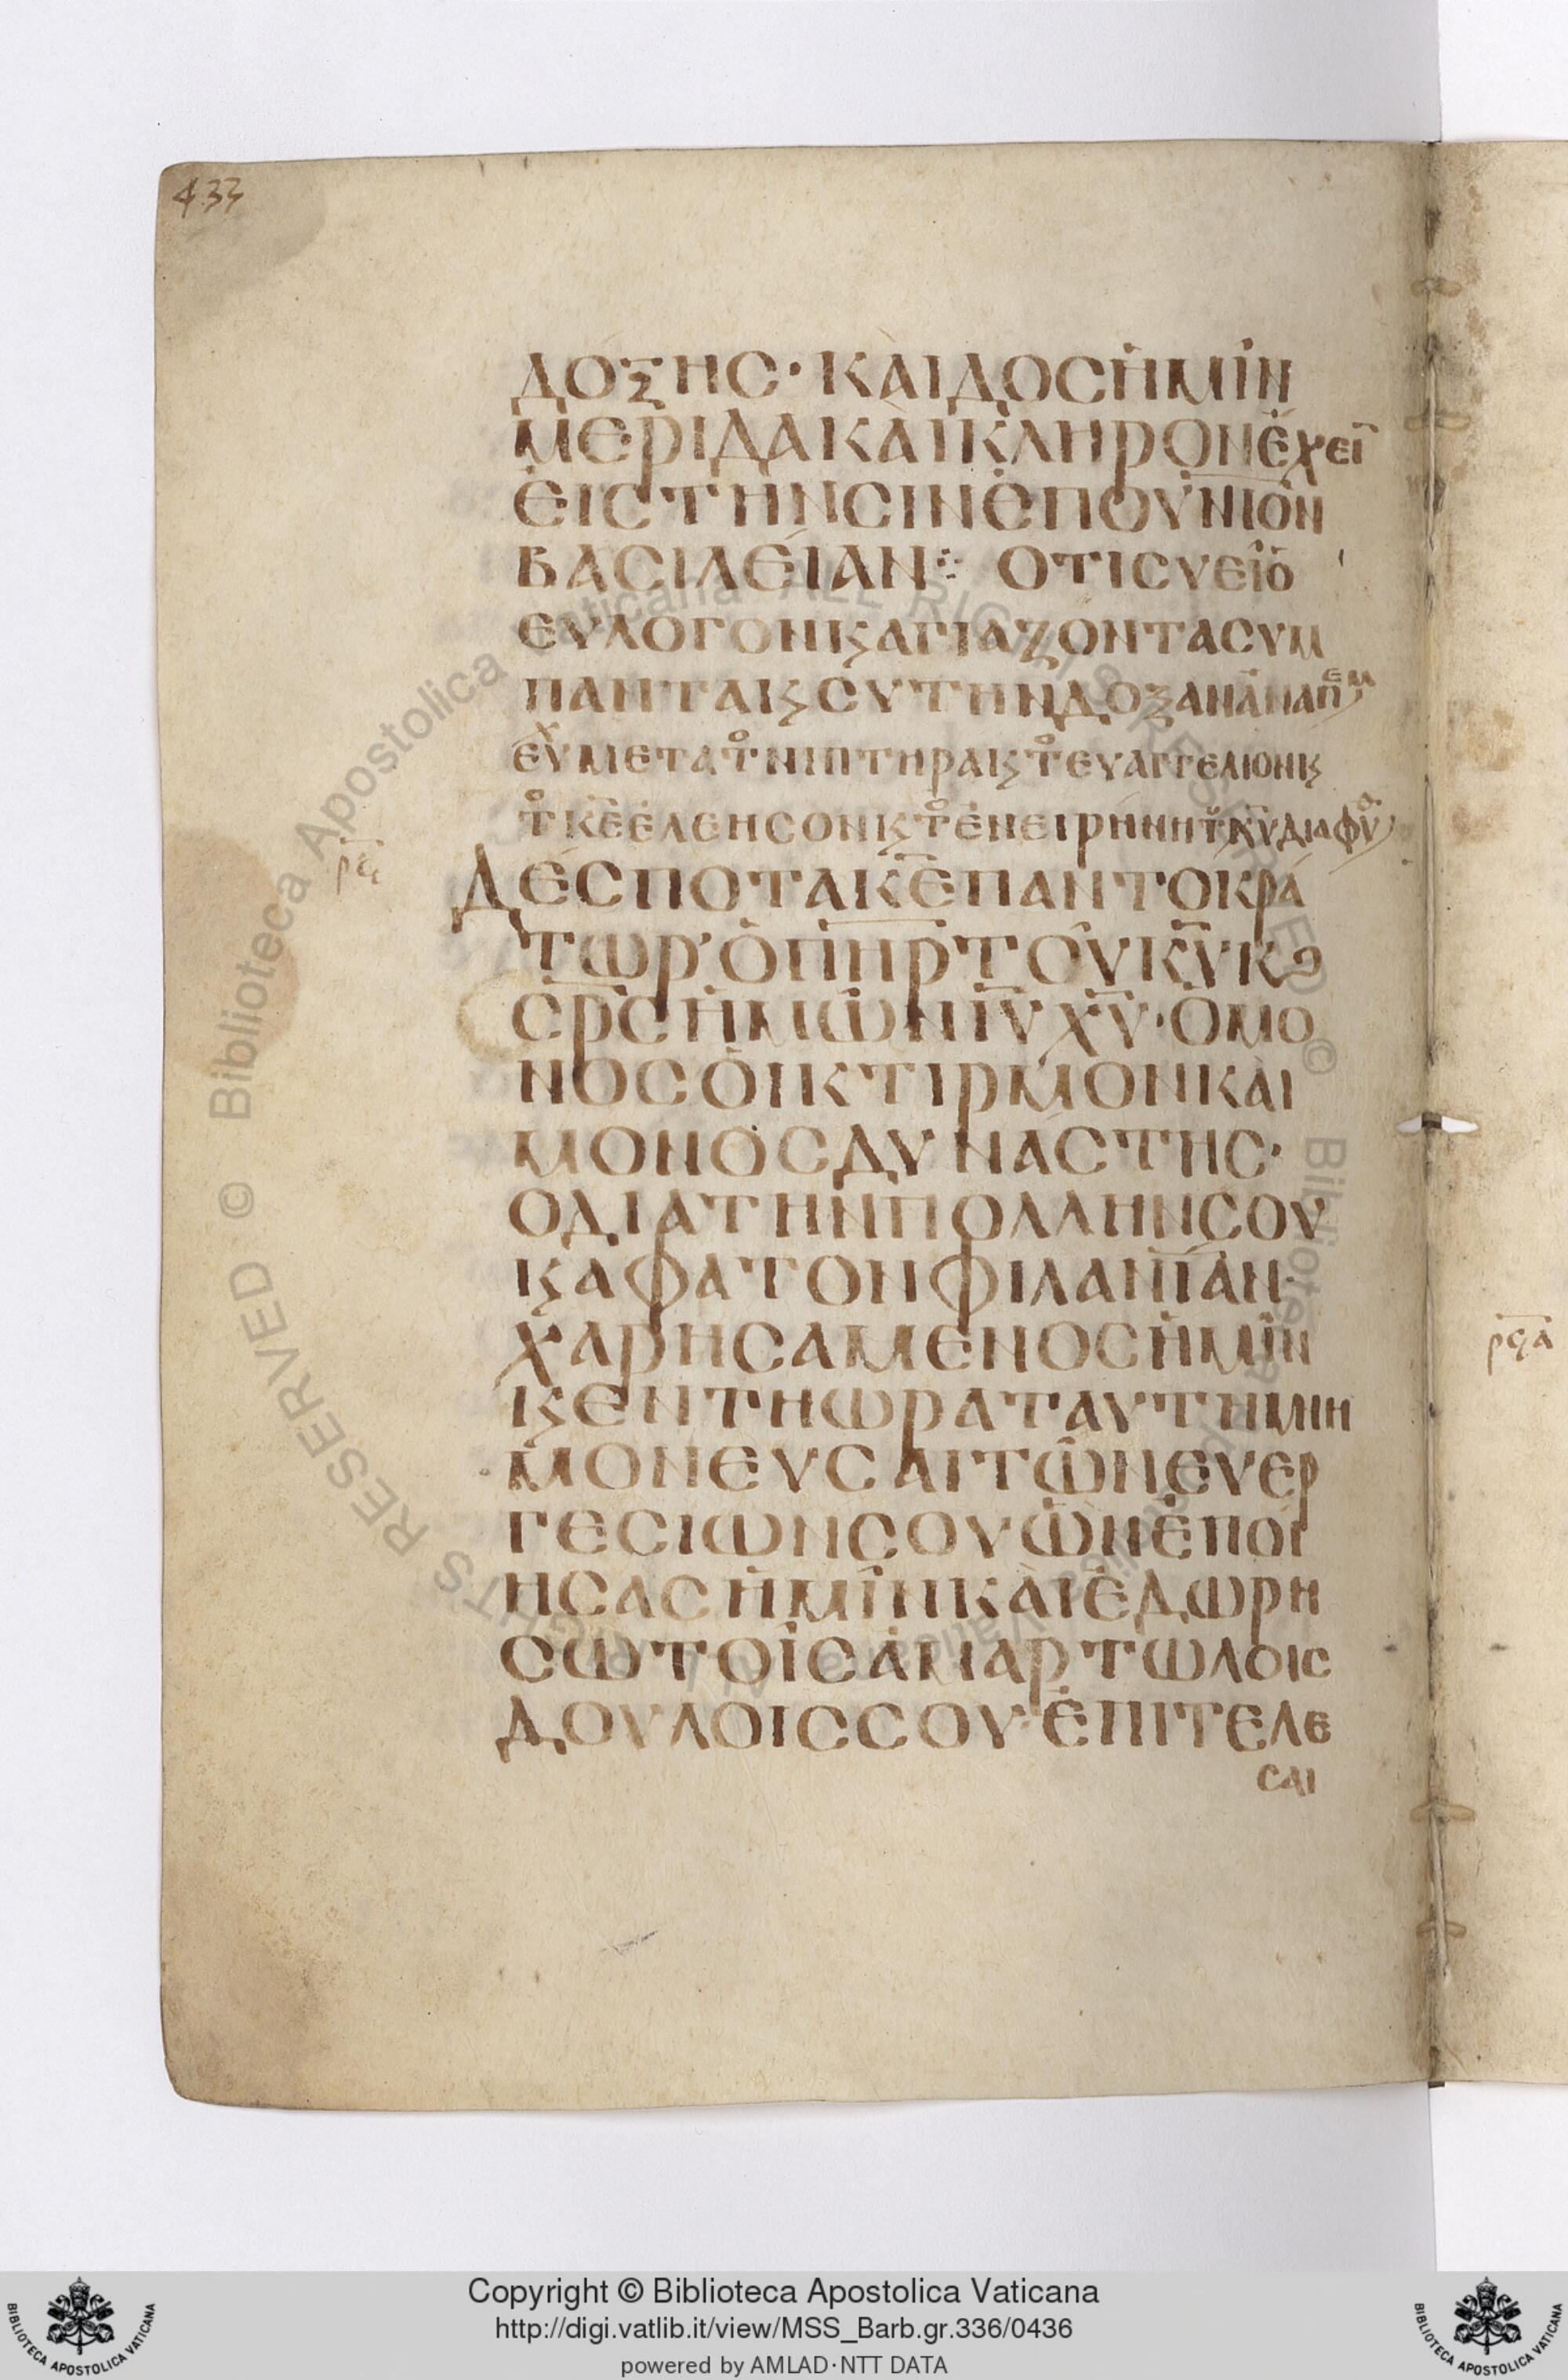 433
ΔΟΞΗС· ΚΑΙΔΟСΗΜΙΝ
ΜΕΡΙΔΑΚΑΙΚΛΗΡΟΝΕΧΕΙ
ΕΙСΤΗΝСΙΝΕΠΟΥΝΙΟΝ
ΒΑСΙΛΕΙΑΝ⁘ ΟΤΙСΥΕΙΟ
ΕΥΛΟΓΟΝϗΑΓΙΑΖΟΝΤΑСΥΜ
ΠΑΝΤΑΙϗСΥΤΗΝΔΟΞΑΝΑΝΑΠΕΜ
ΕΥΧΜΕΤΑΤΟΝΙΠΤΗΡΑΙϗΤΟΕΥΑΓΓΕΛΙΟΝϗ
ΤΟΚΕΕΛΕΗСΟΝϗΤΟΕΝΕΙΡΗΝΗΤΚΥΔΙΑΦΥ
ΔΕСΠΟΤΑΚΕΠΑΝΤΟΚΡΑ
ΤΩΡ·ΟΠΗΡΤΟΥΚΥΚΘ
СΡСΗΜΩΝΙΥΧΥ·ΟΜΟ
ΝΟСΟΙΚΤΙΡΜΟΝΚΑΙ
ΜΟΝΟСΔΥΝΑСΤΗС·
ΟΔΙΑΤΗΝΠΟΛΛΗΝСΟΥ
ϗΑΦΑΤΟΝΦΙΛΑΝΙΑΝ·
ΧΑΡΗСΑΜΕΝΟСΗΜΙΝ
ϗΕΝΤΗΩΡΑΤΑΥΤΗΜΝΗ
ΜΟΝΕΥСΑΙΤΩΝΕΥΕΡ
ΓΕСΙΩΝСΟΥΩΝΕΠΟΙ
ΗСΑСΗΜΙΝΚΑΙΕΔΩΡΗ
СΩΤΟΙСΑΜΑΡΤΩΛΟΙС
ΔΟΥΛΟΙССΟΥ·ΕΠΙΤΕΛΕ
СΑΙ
Copyright © Biblioteca Apostolica Vaticana
http://digi.vatlib.it/view/MSS_Barb.gr.336/0436
powered by AMLAD·NTT DATA
BIBLIOTECA APOSTOLICA VATICANA
BIBLIOTECA APOSTOLICA VATICANA